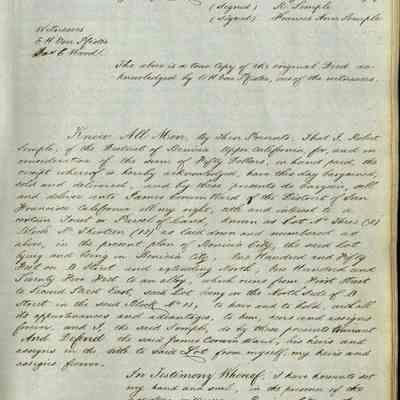 (Signed) R. Semple
(Signed) Frances Ann Semple
Witnesses
E H Von Pfister
The above is a true copy of the original Deed ac-
knowledged by E H Von Pfister, one of the witnesses.
Know All Men, by These Presents, That I, Robert
Semple, of the District of Benicia Upper California, for and in
consideration of the sum of Fifty Dollars, in hand paid, the
receipt whereof is hereby acknowledged, have this day bargained,
sold and delivered, and by these presents do bargain, sell
and deliver unto James Cowan Ward of the District of San
Francisco California all my right, title and interest to a
certain Tract or Parcel of Land, known as Lot No Three (3)
Block No Thirteen (13) as laid down and numbered as
above, in the present plan of Benicia City, the said lot
lying and being in Benicia City, One Hundred and Fifty
Feet on D Street and extending North, One Hundred and
Twenty Five Feet to an alley, which runs from First Street
to Second Street East, said Lot being on the North Side of D
Street in the said Block No 13, to have and to hold, with all
its appurtenances and advantages, to him, heirs and assigns
forever, and I, the said Semple, do by these presents Warrant
And Defend the said James Cowan Ward, his heirs and
assigns in the title to said Lot from myself, my heirs and
assigns forever.
In Testimony Whereof, I have hereunto set
my hand and seal, in the presence of the